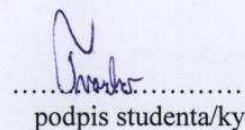 ........................................
podpis studenta/ky